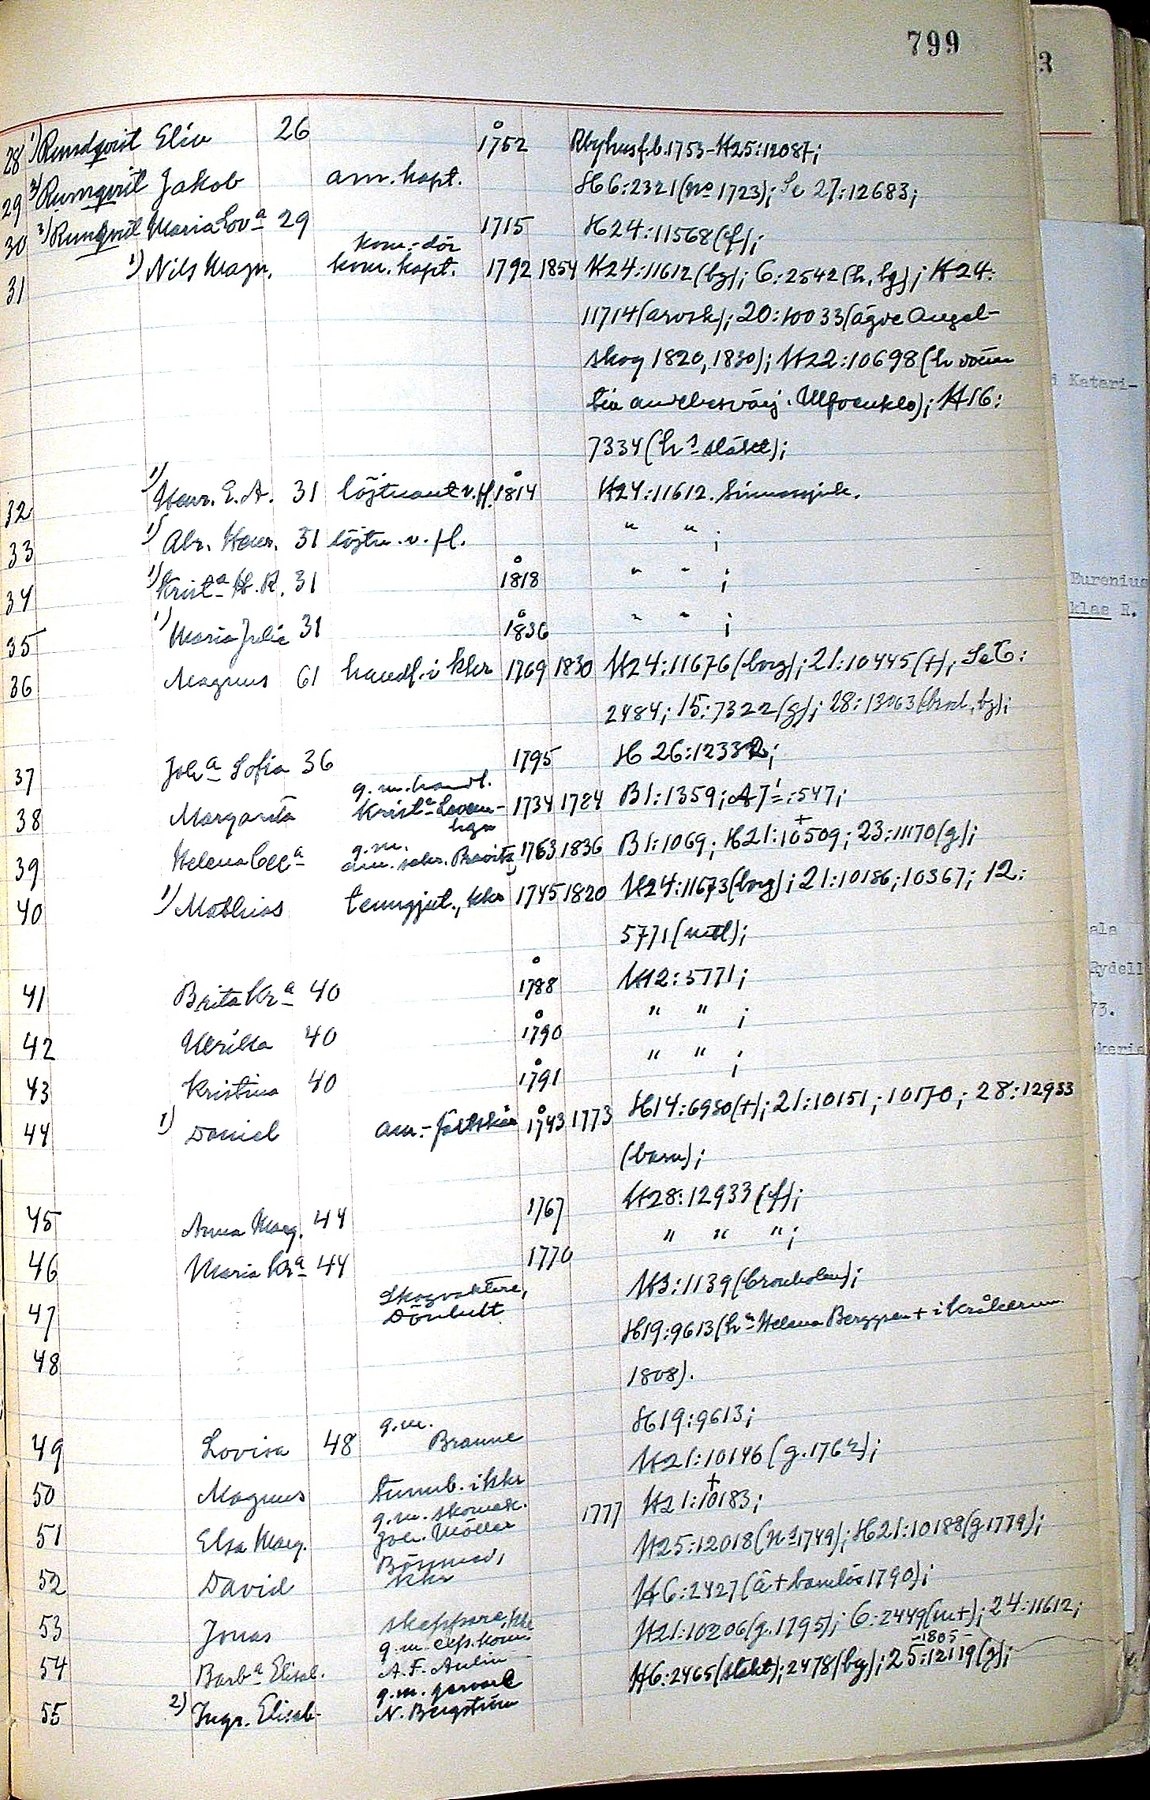 799
3
28 1) Rundqvist Eliv 26 1752 Rbyhusf.b. 1753-H25:12087;
29 2) Rumqvist Jakob am. kapt. H6:2321 (no 1723); Se 27:12683;
30 3) Runqvist Maria Lov:a 29 1715 H24:11568 (f);
kom.-dör
31 1) Nils Magn. kom. kapt. 1792 1854 H24:11612 (bg); 6:2542 (h, bg); H24:
11714 (arvsk); 20:10033 (ägde Angel-
skog 1820, 1830); H22:10698 (h
7334 (h släkt);
32 1) Henr. E. A. 31 löjtnant v. fl. 1814 H24:11612. Sinnessjuk.
33 1) Abr. Henr. 31 löjtn. v. fl. " " ;
34 1) Krist:a H. R. 31 1818 " " ;
35 1) Maria Julia 31 1836 " " ;
36 Magnus 61 handl. i kkr 1769 1830 H24:11676 (borg); 21:10445 (+); Se 6:
2484; 15:7322 (g); 28:13063 (brod, bg);
37 Joh:a Sofia 36 1795 H 26:12332;
g. m. handl.
38 Margareta Krist:r Loven- 1734 1784 B1:1359; A7:547;
hgn
39 Helena Cec:a g.m. am. sekr. 1763 1836 B1:1069; H21:10509; 23:11170 (g);
40 1) Mathias kkr 1745 1820 H24:11673 (borg); 21:10186; 10367; 12:
5771 (mtl);
41 Brita Kr:a 40 1788 H12:5771;
42 Ulrika 40 1790 " " ;
43 Kristina 40 1791 " " ;
44 1) Daniel am.- 1743 1773 H14:6930 (+); 21:10151; 10170; 28:12933
(barn);
45 Anna Marg. 44 1767 H28:12933 (f);
46 Maria Kr:a 44 1770 " " " ;
47 Skogvaktare, H3:1139 (Cronholm);
Dönhult
48 H19:9613 (h:u Helena Berggren + i Kråkerum
1808).
49 Lovisa 48 g.m. Braune H19:9613;
50 Magnus tunnb. i kkr H21:10146 (g. 1762);
51 Elsa Marg. g. m. skomak. Joh. Möller 1777 H21:10183;
52 David Båtsman, kkr H25:12018 (n:o 1749); H21:10188 (g 1779);
53 Jonas skeppare, kkr H6:2427 (ä + barnlös 1790);
54 Barb:a Elisab. g. m. A. F. Aulin H21:10206 (g. 1795); 6:2449 (m+); 24:11612;
-1805-
55 2) Ingr. Elisab. g. m. garvare N. Bergström H6:2465 (släkt); 2478 (bg); 25:12119 (g);
Katari-
Eurenius
klas R.
ala
Rydell
73.